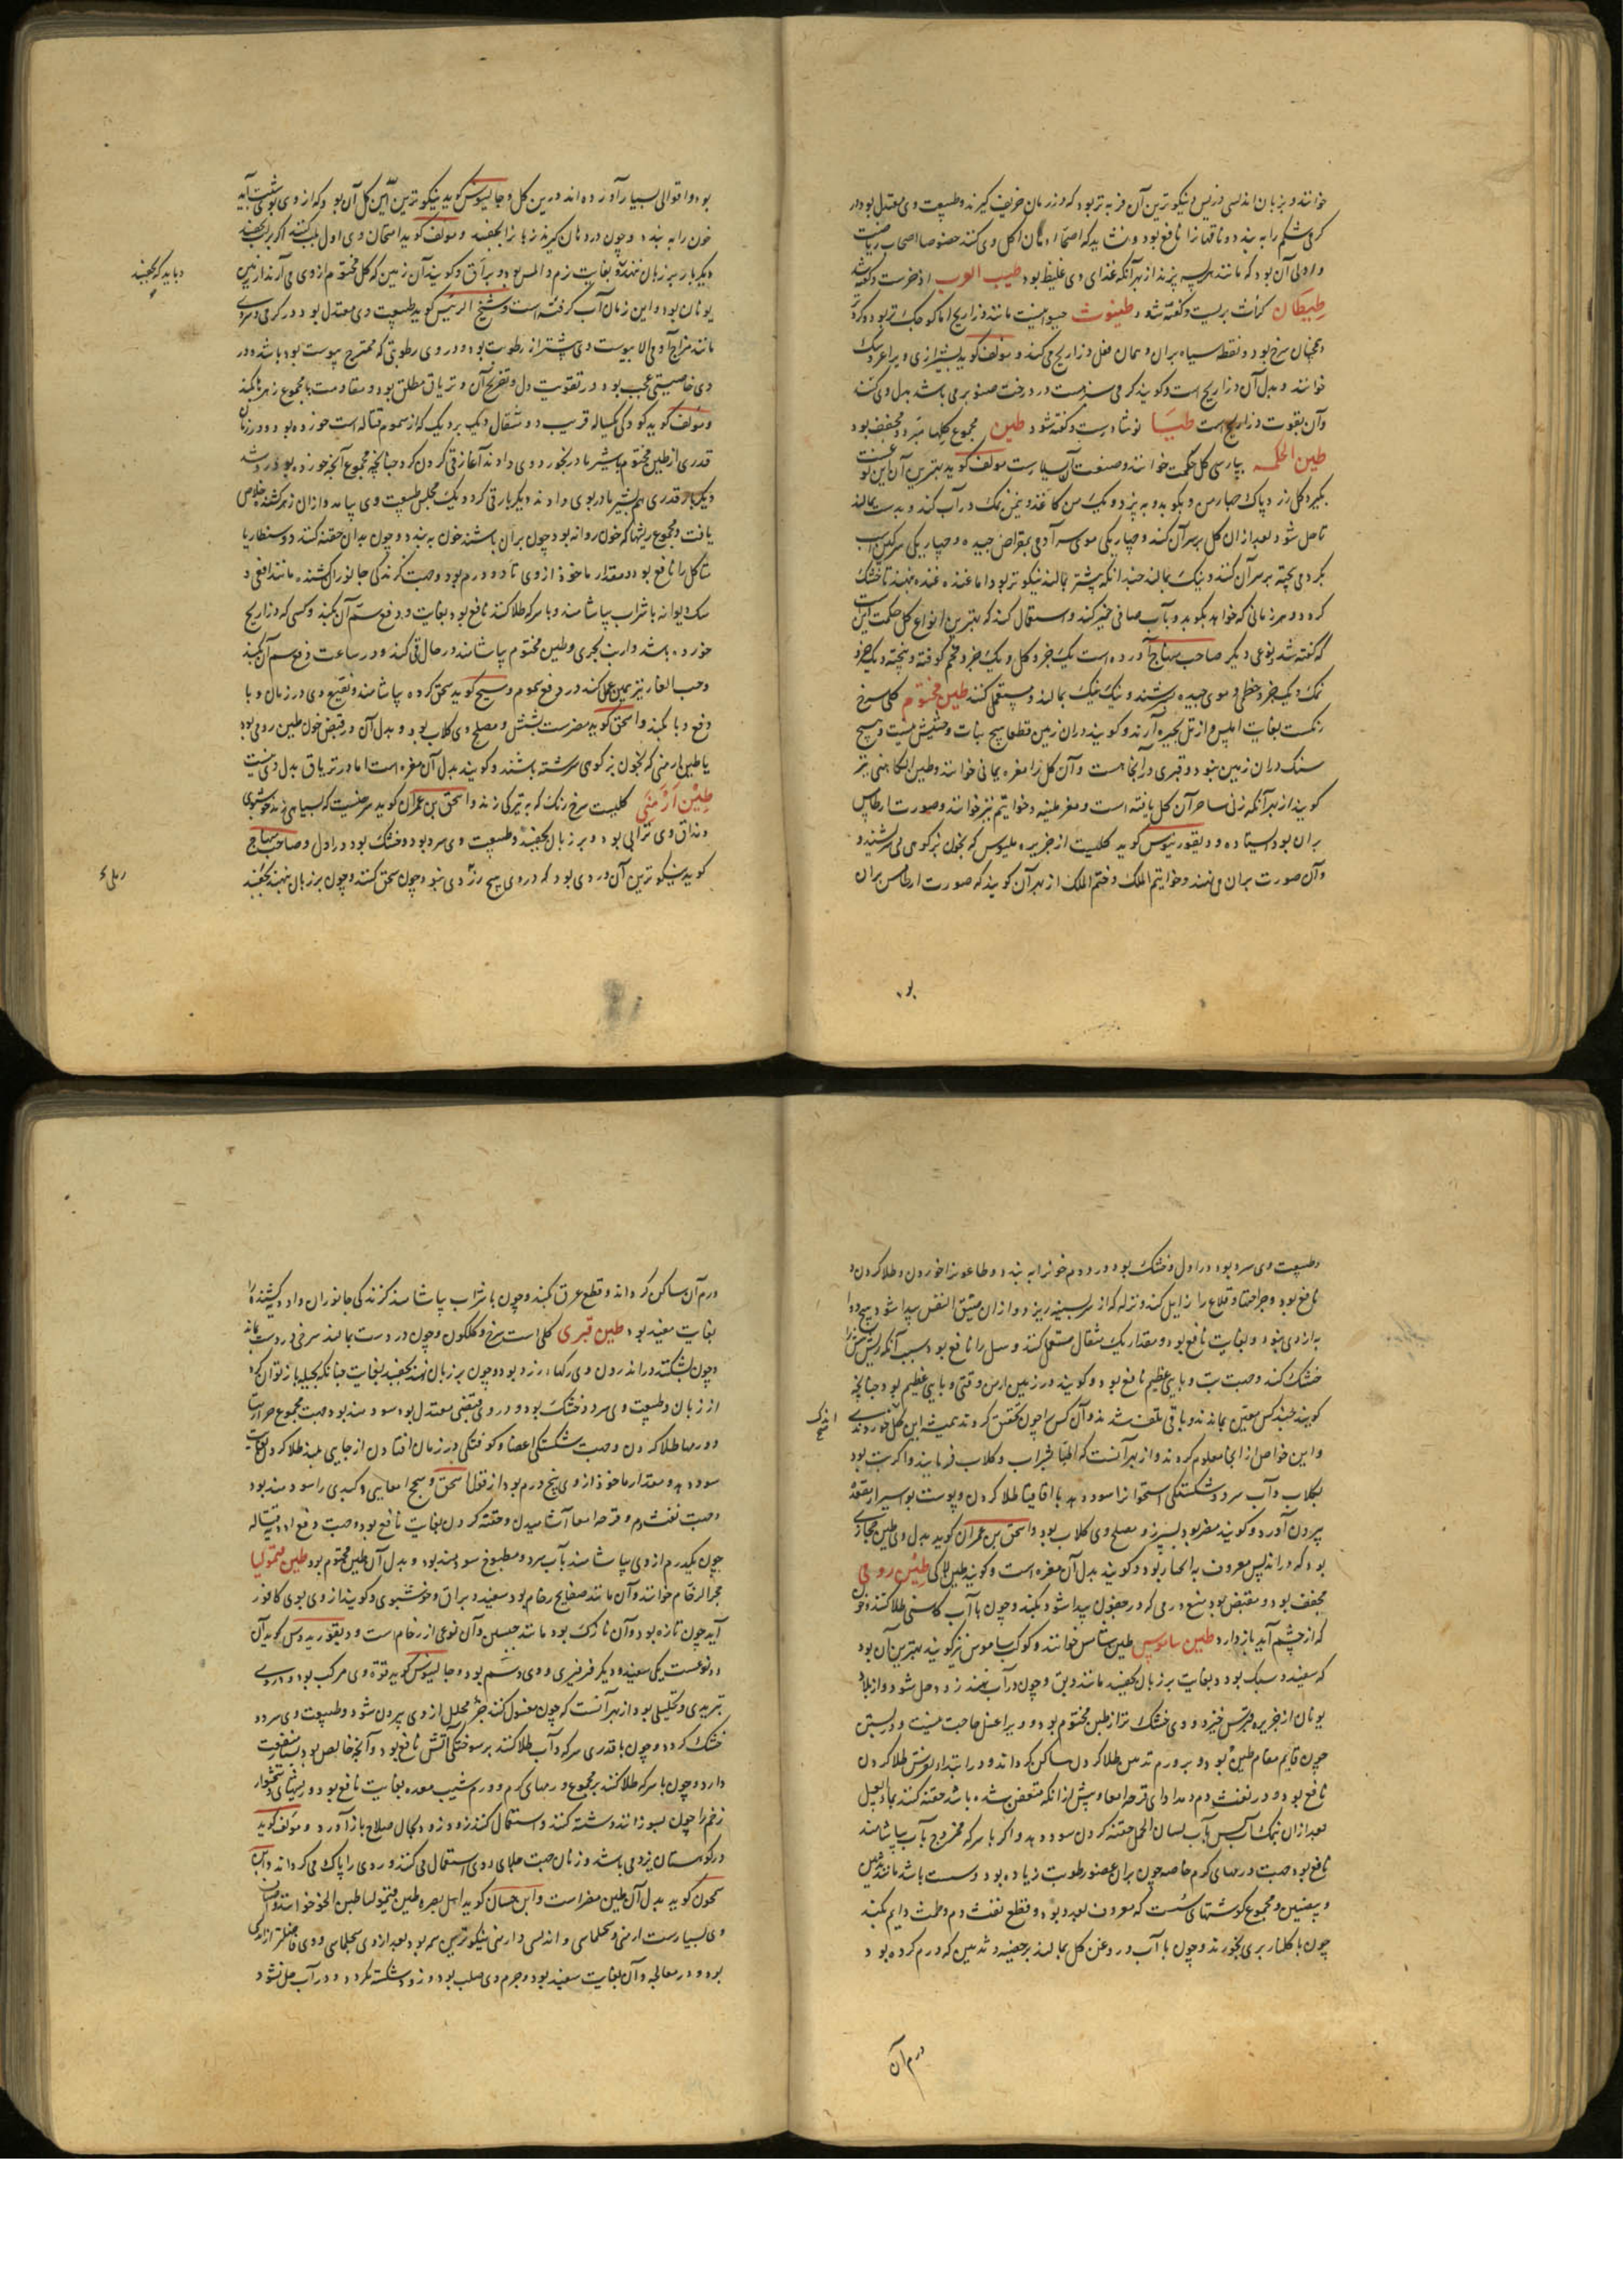 خوانند و بزبان اندلسی وزیس و نیکوترین آن فربه‌تر بود که در زمان خریف کیرند و طبیعت وی معتدل بود در
کرمی شکم را به بندد و ناقهانرا نافع بود و نشاید که اصحا ادمان اکل وی کنند خصوصا اصحاب ریاضت
و اولی آن بود که مانند هریسه پزند از بهر آنکه غذای وی غلیظ بود طیب العرب اذخرست و کفته شد
طیطان کراث بریست و کفته شود طیثوث حیوانیست مانند ذراریح اما کوچک‌تر بود و کرد
و همچنان سرخ بود و نقطه سیاه بران و همان فعل ذراریح می کند و مولف کوید بشیرازی ویرا عروسک
خوانند و بدل آن ذراریح است و کویند کرمی سبزست در درخت صنوبر می باشد بدل وی کنند
و آن بقوت ذراریح است طیسا نوشادرست و کفته شود طین مجموع کلها مبرد و مجفف بود
طین الحکمه بپارسی کل حکمت خوانند و صنعت آن بسیارست مولف کوید بهترین آن این نوعست
بکیرد کل زرد پاک چهار من و بکوبد و به پزد و یک من کاغذ و نیمن نمک در آب کند و بدست بمالد
تا حل شود بعد ازان کل بر سر آن کند و چهار یکی موی سر آدمی بمقراض چیده و چهار یکی سرکین اسب
کرد می پخته بر سر آن کنند و نیک بمالند چندانکه بیشتر بمالند نیکوتر بود اما غنده غنده بنهند تا خشک
کردد و هر زمانی که خواهد بکوبد و بآب صافی خمیر کند و استعمال کند که بهترین انواع کل حکمت اینست
که کفته شد و نوعی دیکر صاحب منهاج آورده است یک جزو کل و یک جزو فحم کوفته و بیخته و یک جزو
نمک و یک جزو خطمی و موی چیده بسرشند و نیک نیک بمالند و مستعمل کنند طین مختوم کلی سرخ
رنکست بغایت املس و از تل بحیره آرند و کویند دران زمین قطعا هیچ نبات و حشیش نیست و هیچ
سنک دران زمین نبود و قبری در آنجا هست و آن کل را مغره یمانی خوانند و طین الکاهنی نیز
کویند از بهر آنکه زنی ساحر آن کل یافته است و مغر طینه و خواتیم نیز خوانند و صورت ارطامس
بران بود ایستاده و دیقوریدوس کوید کلیست از جزیره ملیوس که بخون بز کوهی می سرشند و
و آن صورت بران می نهند و خواتیم الملک و ختم الملک از بهر آن کویند که صورت ارطامس بران
بود
بود و اقوالی بسیار آورده اند درین کل و جالینوس کوید نیکوترین این کل آن بود که از وی بوی شبت آید
خون را به بندد و چون در دهان کیرند زبانرا بجفسد و مولف کوید امتحان وی اول بلب کنند اکر بر لب بجفسد
دیکر بار بر زبان نهند و بغایت نرم و املس بود و براق و کویند آن زمین که کل مختوم از وی می آرند از زمین
یونان بود و این زمان آب کرفته است و شیخ الرئیس کوید طبیعت وی معتدل بود در کرمی و سردی
مانند مزاج آدمی الا یبوست وی بیشتر از رطوبت بود و در وی رطوبتی که ممتزج یبوست بود باشد و در
وی خاصیتی عجب بود در تقویت دل و تفریح آن و تریاق مطلق بود و مقاومت با مجموع زهرها بکند
و مولف کوید کودکی یکساله قریب دو مثقال دیک بر دیک که از سموم قتاله است خورده بود و در زمان
قدری از طین مختوم بشیر مادر بخورد وی دادند آغاز قی کردن کرد چنانچه مجموع آنچه خورده بود رد شد
دیکر بار قدری هم بشیر مادر بوی دادند دیکر بار قی کرد و یک مجلس طبیعت وی بیامد و ازان زهر کشنده خلاص
یافت و مجموع ریشها که خون روانه بود چون بر آن پاشند خون به بندد و چون بدان حقنه کنند دوسنطاریا
متاکل را نافع بود و مقدار ماخوذ از وی تا دو درم بود و جهت کزندکی جانوران کشنده مانند افعی و
سک دیوانه با شراب بیاشامند و با سرکه طلا کنند نافع بود بغایت و دفع سم آن بکند و کسی که ذراریح
خورده باشد و ارنب بحری و طین مختوم بیاشامند در حال قی کند و در ساعت دفع سم آن بکند
و حب الغار نیز همین عمل کند در دفع سموم و مسیح کوید سحق کرده بیاشامند و نقیع وی در زمان وبا
دفع وبا بکند و اسحق کوید مضرست بشش و مصلح وی کلاب بود و بدل آن در قبض خون طین رومی بود
یا طین ارمنی که بخون بز کوهی سرشته باشند و کویند بدل آن مغره است اما در تریاق بدل وی نیست
طین ارمنی کلیست سرخ رنک که به تیرکی زند و اسحق بن عمران کوید سرخیست که بسیاهی زند خوشبوی
و مذاق وی ترابی بود و بر زبان بجفسد و طبیعت وی سرد بود و خشک بود در اول و صاحب منهاج
کوید نیکوترین آن وردی بود که در وی هیچ رز وی نبود چون سحق کنند و چون بر زبان نهند بجفسد
و باید که بجفسد
رملی
و طبیعت وی سرد بود در اول و خشک بود در دوم خونرا به بندد و طاعونرا خوردن و طلا کردن
نافع بود و جراحتها و قلاع را زایل کند و نزله که از سر بسینه ریزد و ازان ضیق النفس پیدا شود هیچ دوا
به ازوی نبود و بغایت نافع بود و مقدار یک مثقال مستعمل کنند و سل را نافع بود بسبب آنکه ریش شش را
خشک کند و جهت تب وبایی عظیم نافع بود و کویند در زمین ارمن وقتی وبایی عظیم بود چنانچه
کویند چند کس معین بماندند و باقی تلف شدند و آن کس را چون تحقیق کردند همیشه این کل خوردندی
و این خواص از آنجا معلوم کردند و از بهر آنست که اطبا بشراب و کلاب فرمایند و اکر تب بود
بکلاب و آب سرد و شکستکی استخوانرا سود دهد با اقاقیا طلا کردن و پوست بواسیر از مقعد
بیرون آورد و کویند مضر بود بسپرز و مصلح وی کلاب بود و اسحق بن عمران کوید بدل وی طین حجازی
بود که در اندلس معروف به انجبار بود و کویند بدل آن مغره است و کویند طین لاکی طین رومی
مجفف بود و مقبض بود منع ورمی که در جفون پیدا شود بکند و چون با آب کاسنی طلا کنند خون
که از چشم آید باز دارد طین ساموس طین ستامس خوانند و کوکب ساموس نیز کویند بهترین آن بود
که سفید و سبک بود و بغایت بر زبان بجفسد مانند دبق و چون در آب نهند زود حل شود و از بلاد
یونان از جزیره قبرس خیزد و وی خشک‌تر از طین مختوم بود و ویرا غسل حاجت نیست و در بستن
خون قایم مقام طین بود و بر ورم ثدیین طلا کردن ساکن کرداند و در ابتدا و نقرس طلا کردن
نافع بود و در نفث دم و مداوای قرحه امعا و پیش از آنکه متعفن شده باشد حقنه کنند بماء العسل
بعد ازان نمک آب پس بآب لسان الحمل حقنه کردن سود دهد و اکر با سرکه ممزوج بآب بیاشامند
نافع بود جهت ورمهای کرم خاصه چون بران عضو رطوبت زیاده بود و سست باشد مانند ثدیین
و بیضتین و مجموع کوشتهای سست که معروف بغدد بود و قطع نفث دم و طمث دایم بکند
چون با کلنار بری بخورند و چون با آب و روغن کل بمالند بر خصیه و ثدیین که ورم کرده بود
اندک
ورم آن
ورم آن ساکن کرداند و قطع عرق بکند و چون با شراب بیاشامند کزندکی جانوران و ادویه کشنده را
بغایت مفید بود طین قبرسی کلی است سرخ و کلکون و چون در دست بمالند سرخی در دست بماند
و چون بشکنند در اندرون وی رکهاء زرد بود و چون بر زبان نهند بجفسد بغایت چنانکه بحیله باز توان کرد
از زبان و طبیعت وی سرد و خشک بود و در وی قبضی معتدل بود سودمند بود جهت مجموع حرارتها
و ورمها طلا کردن و جهت شکستکی اعضا و کوفتکی در زمان افتادن از جایی بلند طلا کردن بغایت
سود دهد و مقدار ماخوذ از وی پنج درم بود از قول اسحق و سحج امعایی و کبدی را سودمند بود
و جهت نفث دم و قرحه امعا آشامیدن و حقنه کردن بغایت نافع بود و جهت دفع ادویه قتاله
چون یکدرم از وی بیاشامند بآب سرد و مطبوخ سودمند بود و بدل آن طین مختوم بود طین قیمولیا
حجر الرخام خوانند و آن مانند صفایح رخام بود سفید و براق و خوشبوی و کویند از وی بوی کافور
آید چون تازه بود و آن نازک بود مانند جبسین و آن نوعی از رخام است و دیقوریدوس کوید آن
دو نوعست یکی سفید و دیکر فرفیری و وی دسم بود و جالینوس کوید قوة وی مرکب بود و در وی
تبریدی و تحلیلی بود از بهر آنست که چون مغسول کنند جزء محلل از وی بیرون شود و طبیعت وی سرد و
خشک کردد و چون با قدری سرکه و آب طلا کنند بر سوختکی آتش نافع بود و آنچه خالص بود بسیار منفعت
دارد و چون با سرکه طلا کنند بر مجموع ورمهای کرم و ورم شیب معده بغایت نافع بود و ریشهای دشخوار
زخم را چون بسوزانند و شسته کنند و استعمال کنند زود زود بحال صلاح باز آورد و مولف کوید
در کوهستان یزد می باشد و زنان جهت جلای روی استعمال می کنند و روی را پاک می کرداند و ابن
سمجون کوید بدل آن طین مغر است و ابن حسان کوید اهل بصره طین قیمولیا طین الحر خوانند و اصناف
وی بسیارست ارمنی و سجلماسی و اندلسی و ارمنی نیکوترین همه بود بعد ازوی سجلماسی و وی فاضلتر از اندلسی
بود و در معالجه و آن بغایت سفید بود و جرم وی صلب بود و زود شکسته نکردد و در آب حل نشود